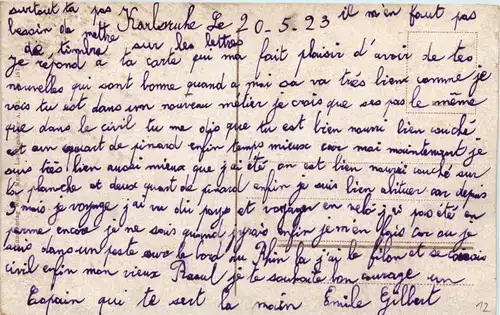 surtout ta pas Karlsruhe Le 20-5.23 il m'en faut pas
besoin de mettre
de timbre sur les lettres
je répond a ta carte qui ma fait plaisir d'avoir de tes
nouvelles qui sont bonne quand a moi sa va très bien comme je
vois tu est dans un nouveau métier je crois que ses pas le même
que dans le civil tu me dis que tu est bien nourri bien couché
et un quart de pinard enfin temps mieux car moi maintenant je
suis très bien aussi mieux que j'ai été on est bien nourri couché sur
la planche et deux quart de pinard enfin je suis bien abituer car depuis
9 mois je voyage j'ai vu du pays et voyager en velo j'ai pas été en
perme encore je ne sais quand j'yrais enfin je m'en fois car ou je
suis dans un poste sur le bord du Rhin la j'ai le filon et se
civil enfin mon vieux Raoul je te souhaite bon courage un
Copain qui te sert la main Emile Gilbert
12